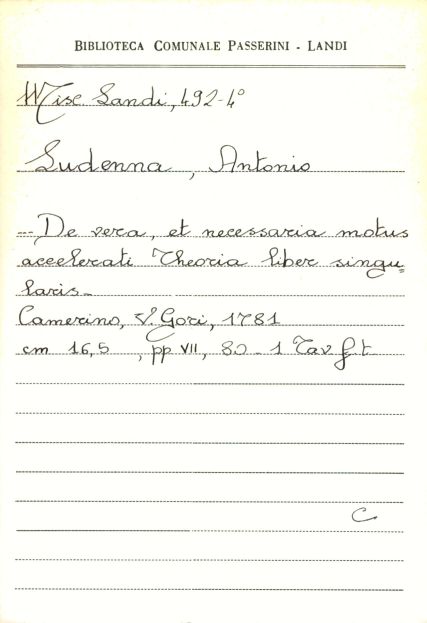 BIBLIOTECA COMUNALE PASSERINI - LANDI
Misc Landi, 492-4°
Ludenna, Antonio
-- De vera, et necessaria motus
accelerati Theoria liber singu=
laris -
Camerino, V. Gori, 1781
cm 16,5 , pp VII, 80 - 1 Tav f. t
C